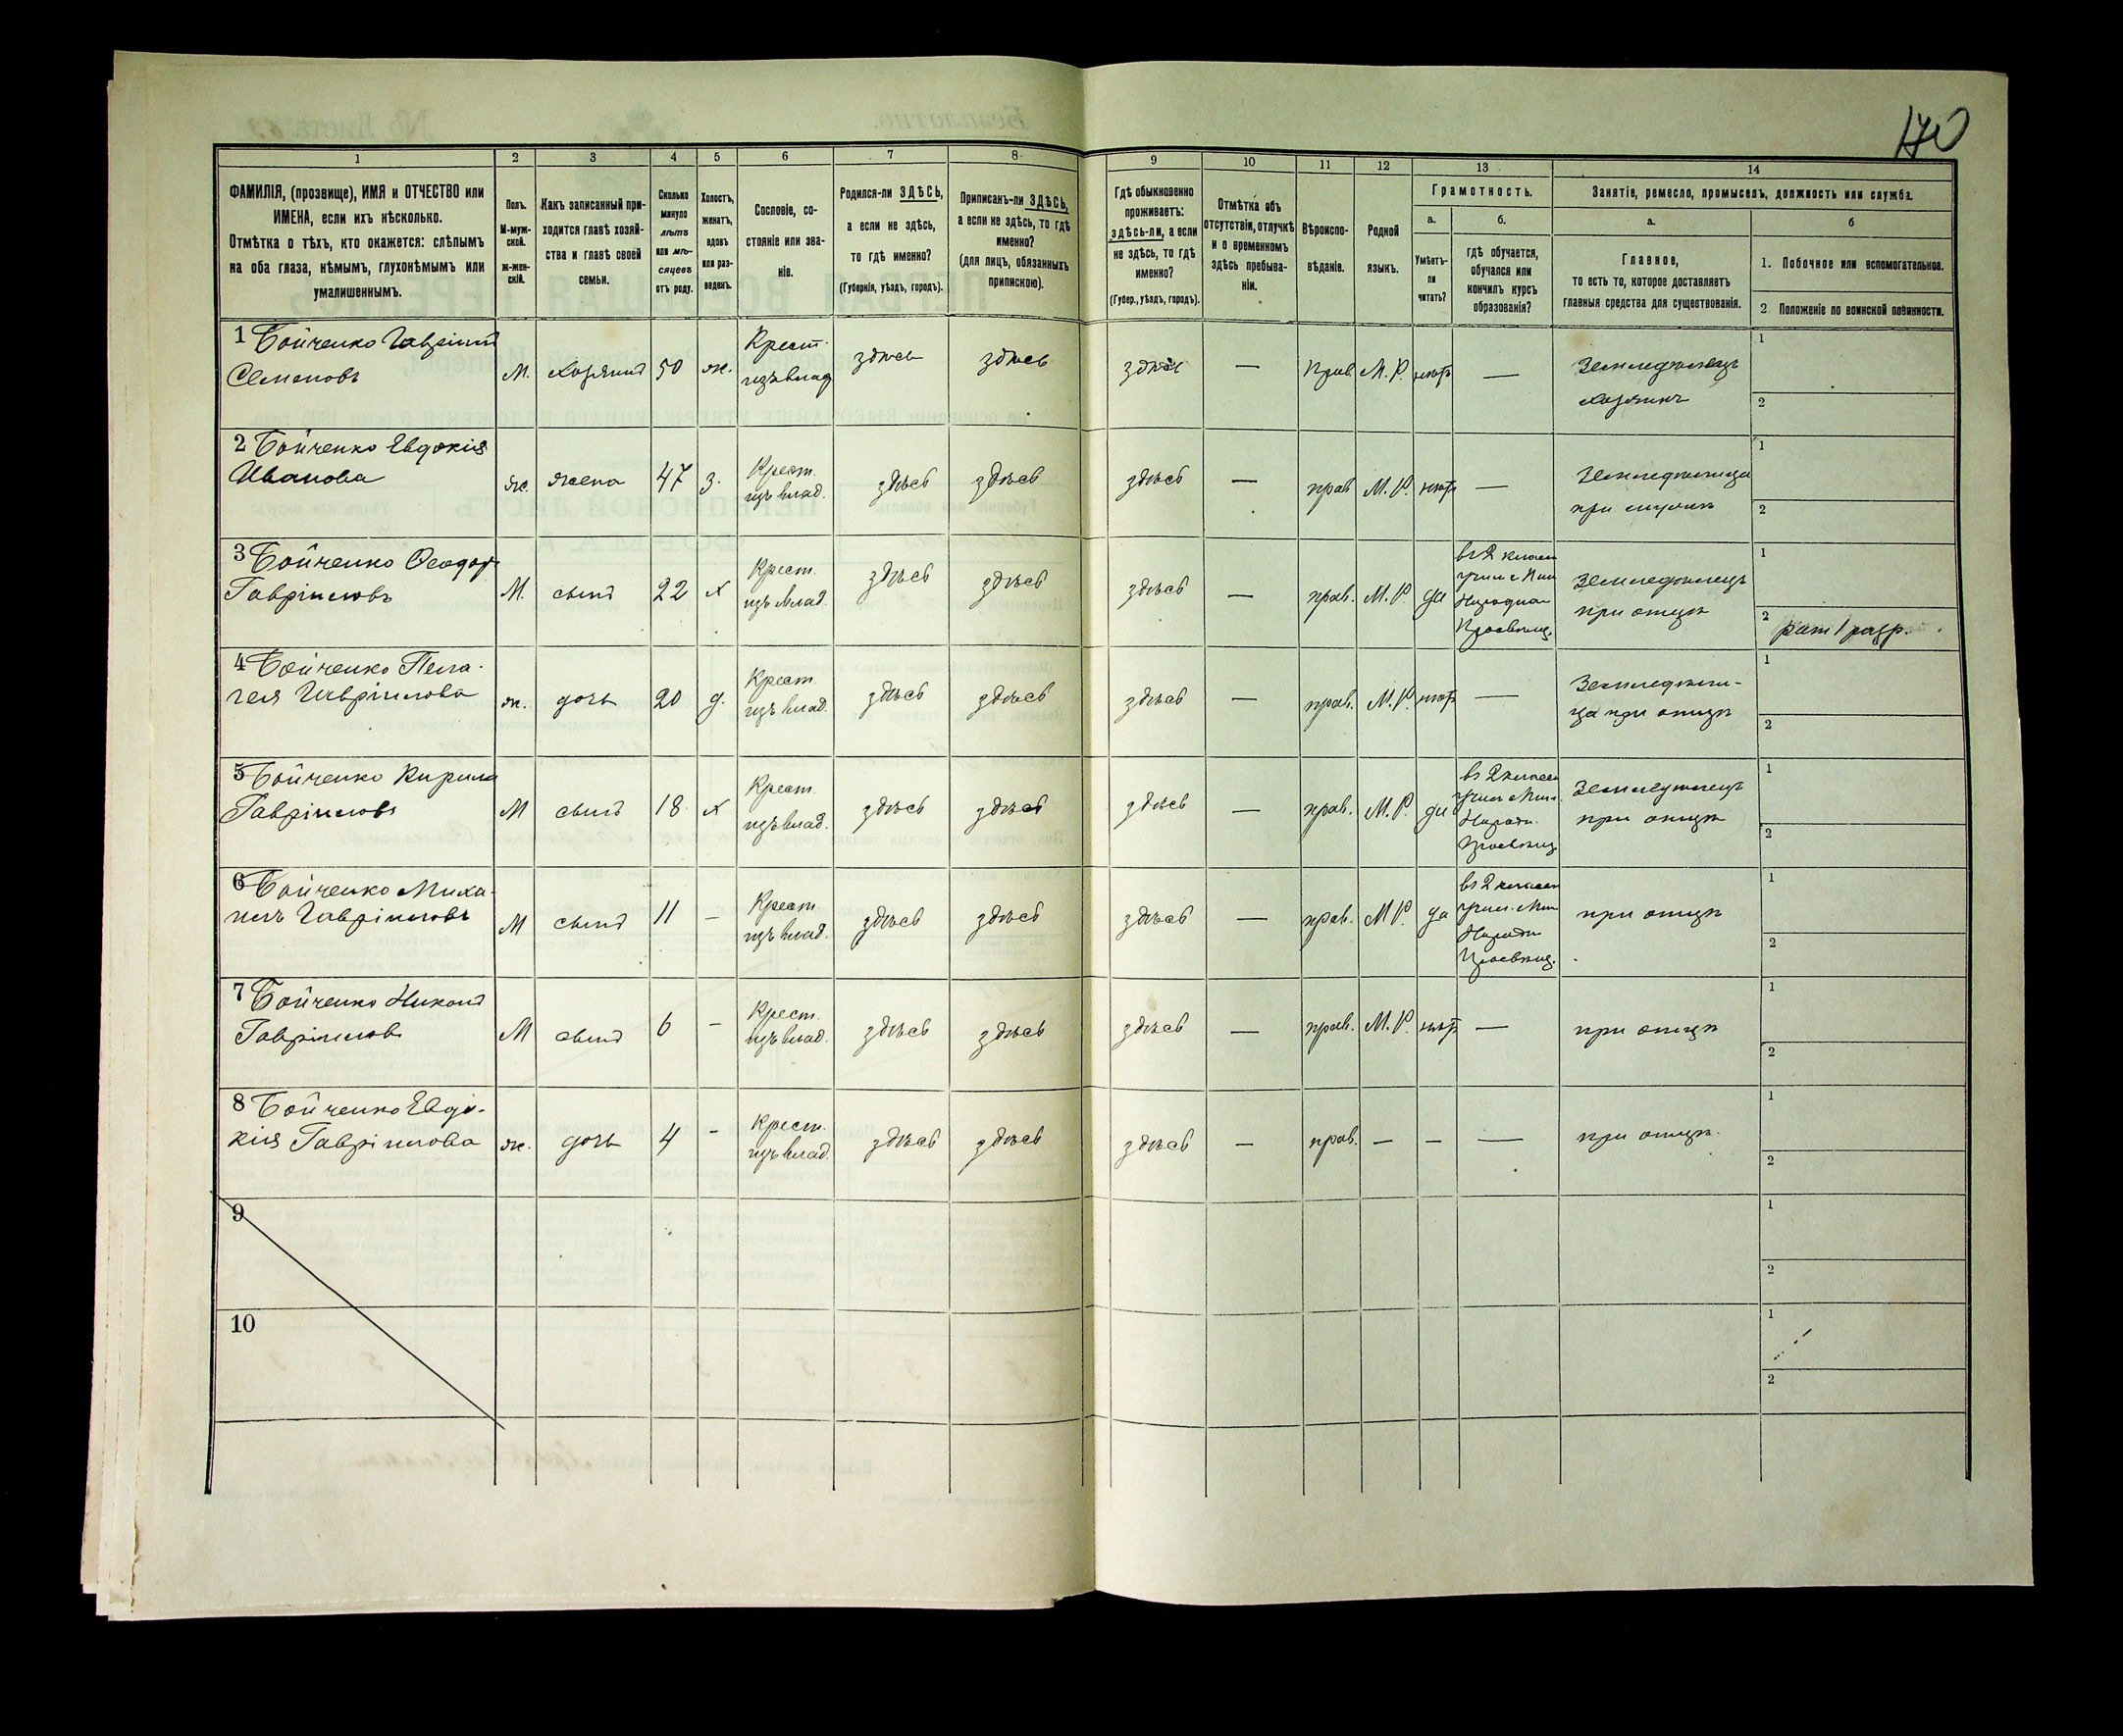 170
1 2 3 4 5 6 7 8 9 10 11 12 13 14
ФАМИЛІЯ, (прозвище), ИМЯ и ОТЧЕСТВО или
ИМЕНА, если ихъ нѣсколько.
Отмѣтка о тѣхъ, кто окажется: слѣпымъ
на оба глаза, нѣмымъ, глухонѣмымъ или
умалишеннымъ.
Полъ.
М-муж-
ской.
ж-жен-
скій.
Какъ записанный при-
ходится главѣ хозяй-
ства и главѣ своей
семьи.
Сколько
минуло
лѣтъ
или мѣ-
сяцевъ
отъ роду.
Холостъ,
женатъ,
вдовъ
или раз-
веденъ.
Сословіе, со-
стояніе или зва-
ніе.
Родился-ли ЗДѢСЬ,
а если не здѣсь,
то гдѣ именно?
(Губернія, уѣздъ, городъ).
Приписанъ-ли ЗДѢСЬ,
а если не здѣсь, то гдѣ
именно?
(для лицъ, обязанныхъ
припискою).
Гдѣ обыкновенно
проживаетъ:
здѣсь-ли, а если
не здѣсь, то гдѣ
именно?
(Губер., уѣздъ, городъ).
Отмѣтка объ
отсутствіи, отлучкѣ
и о временномъ
здѣсь пребыва-
ніи.
Вѣроиспо-
вѣданіе.
Родной
языкъ.
Грамотность.
а.
Умѣетъ-
ли
читать?
б.
гдѣ обучается,
обучался или
кончилъ курсъ
образованія?
Занятіе, ремесло, промыселъ, должность или служба.
а.
Главное,
то есть то, которое доставляетъ
главныя средства для существованія.
б
1. Побочное или вспомогательное.
2 Положеніе по воинской повинности.
1 Бойченко Гавріилъ
Семеновъ
М. хозяинъ 50 ж.
Крест.
изъ влад.
здѣсь здѣсь здѣсь — Прав. М.Р. нѣтъ —
Земледѣлецъ
хозяинъ
1
2
2 Бойченко Евдокія
Иванова
ж. жена 47 з.
Крест.
изъ влад.
здѣсь здѣсь здѣсь — прав М.Р. нѣтъ —
Земледѣлица
при мужѣ
1
2
3 Бойченко Ѳеодоръ
Гавріиловъ
М. сынъ 22 х
Крест.
изъ влад.
здѣсь здѣсь здѣсь — прав. М.Р. да
въ 2 класн
учил. Мин
Народна
Просвѣщ.
Земледѣлецъ
при отцѣ
1
2 рат 1 разр.
4 Бойченко Пела-
гея Гавріилова
ж. дочь 20 д.
Крест.
изъ влад.
здѣсь здѣсь здѣсь — прав. М.Р. нѣтъ —
Земледѣли-
ца при отцѣ
1
2
5 Бойченко Кирила
Гавріиловъ
М сынъ 18 х
Крест.
изъ влад.
здѣсь здѣсь здѣсь — прав. М.Р. да
въ 2 класн
учил. Мин.
Народн.
Просвѣщ.
Земледѣлецъ
при отцѣ
1
2
6 Бойченко Миха-
илъ Гавріиловъ
М сынъ 11 —
Крест
изъ влад.
здѣсь здѣсь здѣсь — прав. М Р. да
въ 2 класн
учил. Мин
Народн
Просвѣщ.
при отцѣ
1
2
7 Бойченко Никонъ
Гавріиловъ
М сынъ 6 —
Крест.
изъ влад.
здѣсь здѣсь здѣсь — прав. М.Р. нѣтъ —
при отцѣ
1
2
8 Бойченко Евдо-
кія Гавріилова
ж. дочь 4 —
Крест.
изъ влад.
здѣсь здѣсь здѣсь — прав. — — —
при отцѣ.
1
2
9
1
2
10
1
2